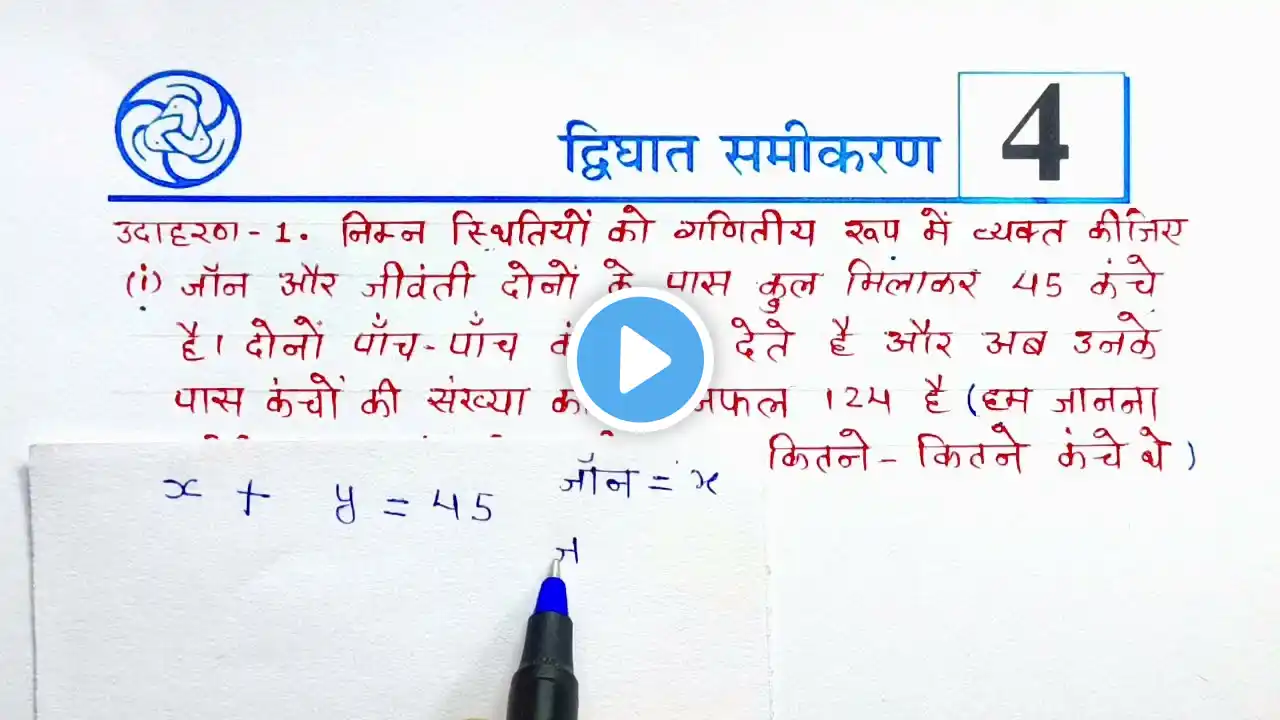 द्विघात समीकरण 4
उदाहरण - 1. निम्न स्थितियों को गणितीय रूप में व्यक्त कीजिए
(i) जॉन और जीवंती दोनों के पास कुल मिलाकर 45 कंचे
है। दोनों पाँच-पाँच देते है और अब उनके
पास कंचों की संख्या 124 है (हम जानना
कितने - कितने कंचे थे )
जॉन = x
x + y = 45